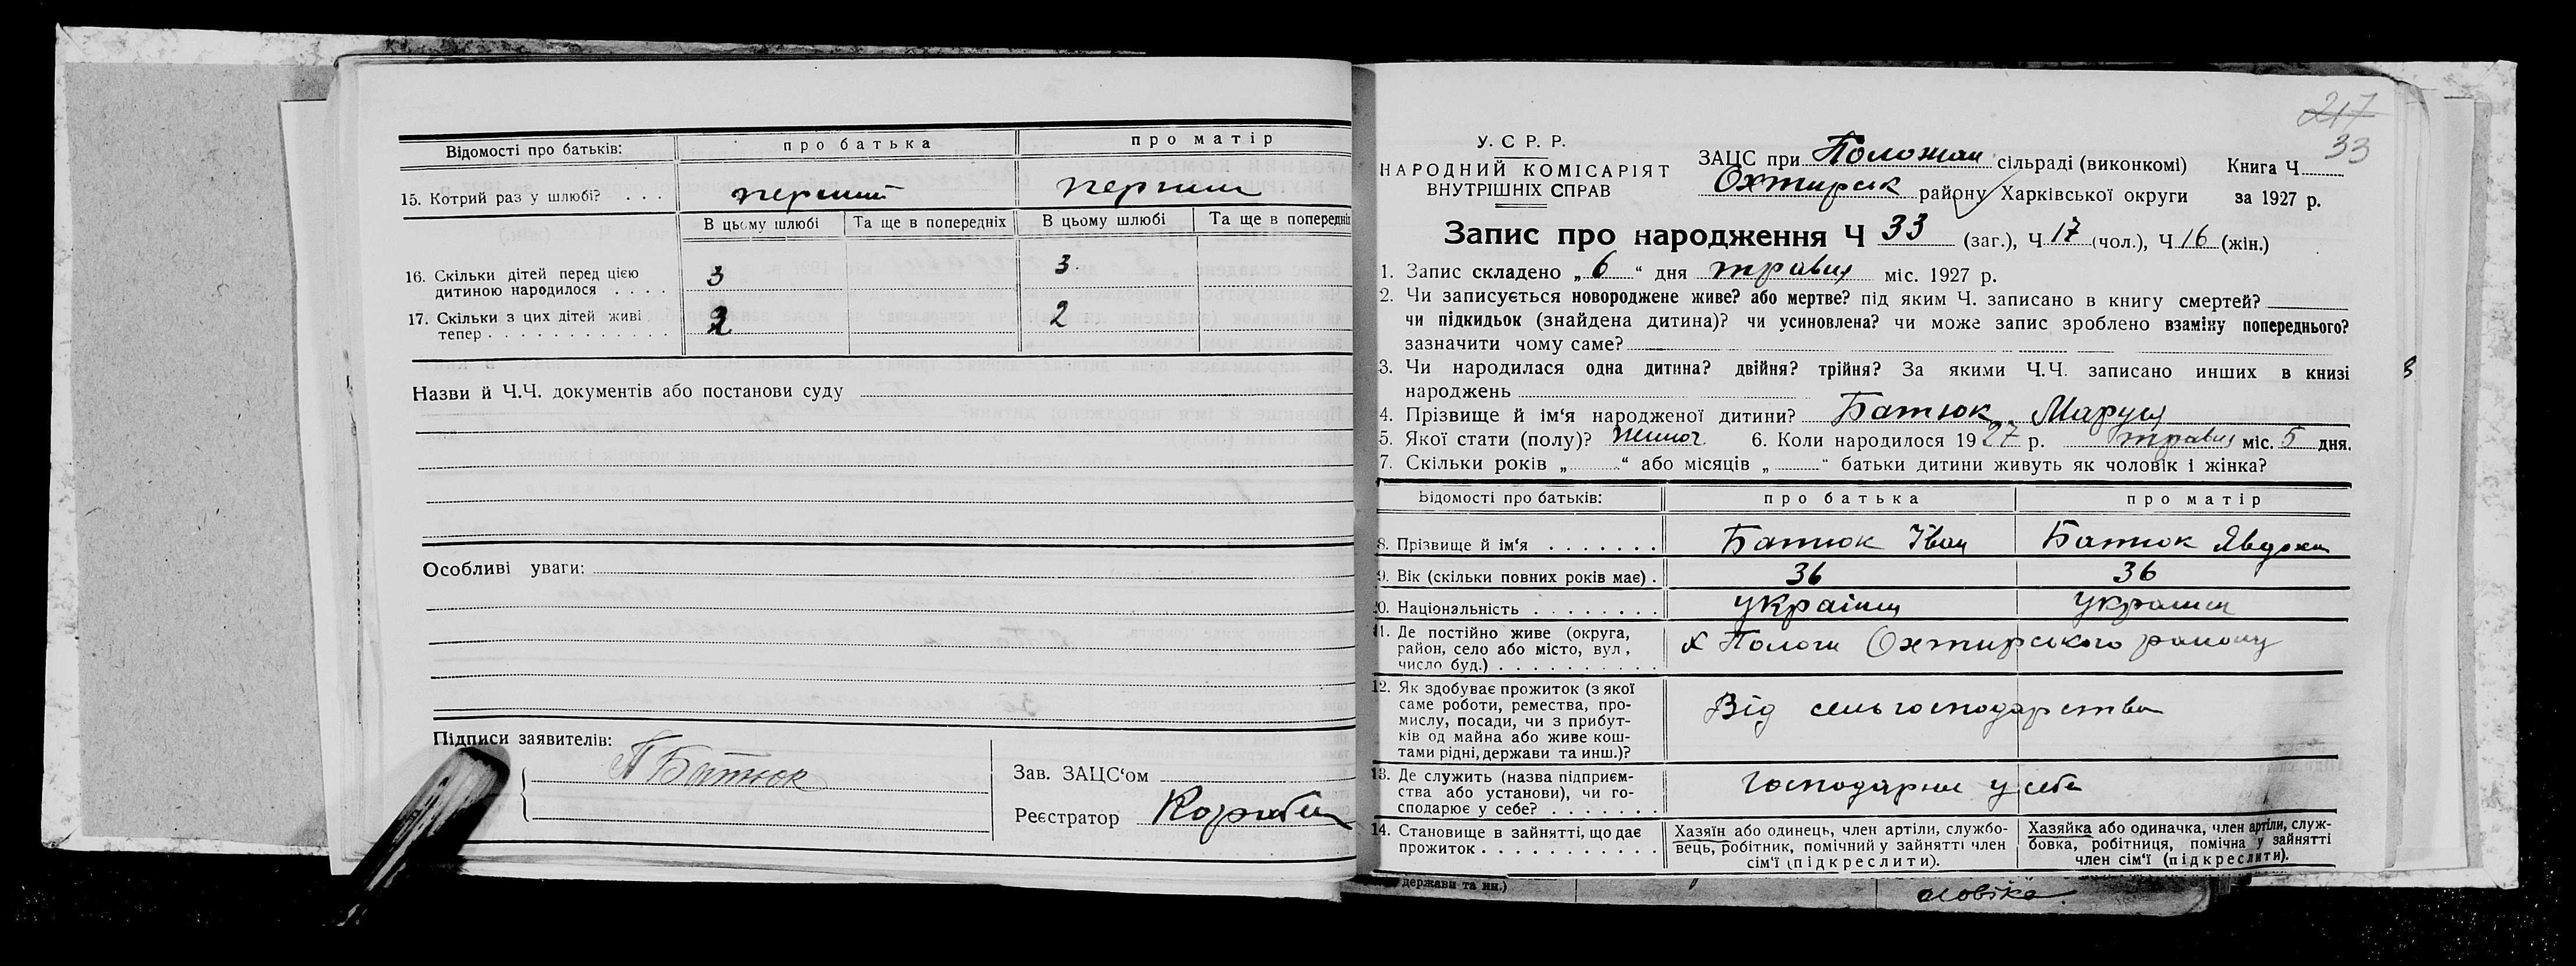 Відомості про батьків: про батька про матір
15. Котрий раз у шлюбі? . . . перший перший
В цьому шлюбі Та ще в попередніх В цьому шлюбі Та ще в попередніх
16. Скільки дітей перед цією
дитиною народилося . . . . 3 3
17. Скільки з цих дітей живі
тепер . . . . . . . . . . . . 2 2
Назви й Ч.Ч. документів або постанови суду
Особливі уваги:
Підписи заявителів:
Батюк
Зав. ЗАЦС‘ом
Реєстратор
217
33
У. С. Р. Р.
НАРОДНИЙ КОМІСАРІЯТ
ВНУТРІШНІХ СПРАВ
ЗАЦС при сільраді (виконкомі) Книга Ч.
Охтирськ району Харківської округи за 1927 р.
Запис про народження Ч 33 (заг.), Ч 17 (чол.), Ч 16 (жін.)
1. Запис складено „ 6 “ дня травня міс. 1927 р.
2. Чи записується новороджене живе? або мертве? під яким Ч. записано в книгу смертей?
чи підкидьок (знайдена дитина)? чи усиновлена? чи може запис зроблено взаміну попереднього?
зазначити чому саме?
3. Чи народилася одна дитина? двійня? трійня? За якими Ч.Ч. записано инших в книзі
народжень
4. Прізвище й ім‘я народженої дитини? Батюк Маруся
5. Якої стати (полу)? жіноч. 6. Коли народилося 1927 р. травня міс. 5 дня.
7. Скільки років „ “ або місяців „ “ батьки дитини живуть як чоловік і жінка?
Відомості про батьків: про батька про матір
8. Прізвище й ім‘я . . . . . . . Батюк Іван Батюк Явдоха
9. Вік (скільки повних років має) . 36 36
10. Національність . . . . . . . .
11. Де постійно живе (округа,
район, село або місто, вул,
число буд.) . . . . . . . . . . х Пологи Охтирського району
12. Як здобуває прожиток (з якої
саме роботи, ремества, про-
мислу, посади, чи з прибут-
ків од майна або живе кош-
тами рідні, держави та инш.)? Від сельгосподарства
13. Де служить (назва підприєм-
ства або установи), чи го-
сподарює у себе? . . . . . . . у себе
14. Становище в зайнятті, що дає
прожиток . . . . . . . . . . .
Хазяїн або одинець, член артіли, службо-
вець, робітник, помічний у зайнятті член
сім‘ї (підкреслити).
Хазяйка або одиначка, член артіли, служ-
бовка, робітниця, помічна у зайнятті
член сім‘ї (підкреслити).
держави та ин.)